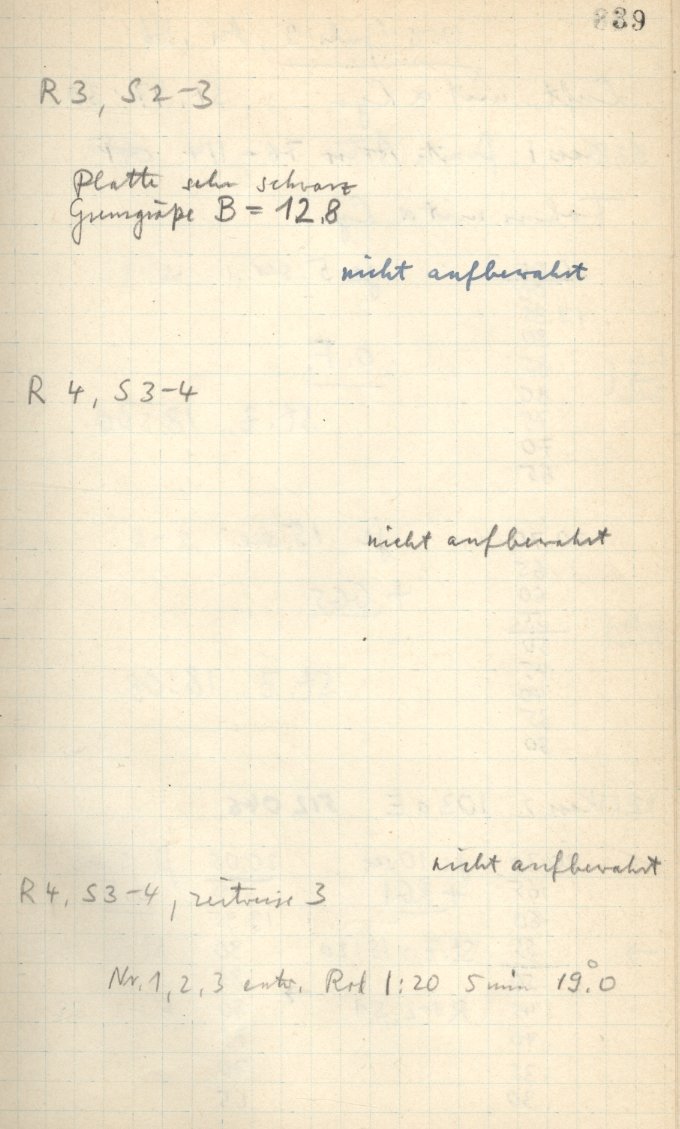 839
R 3, S 2-3
Platte sehr schwarz
Grenzgröße B = 12,8
nicht aufbewahrt
R 4, S 3-4
nicht aufbewahrt
nicht aufbewahrt
R 4, S 3-4, zeitweise 3
Nr. 1, 2, 3 entw. Rod 1:20 5 min 19.°0